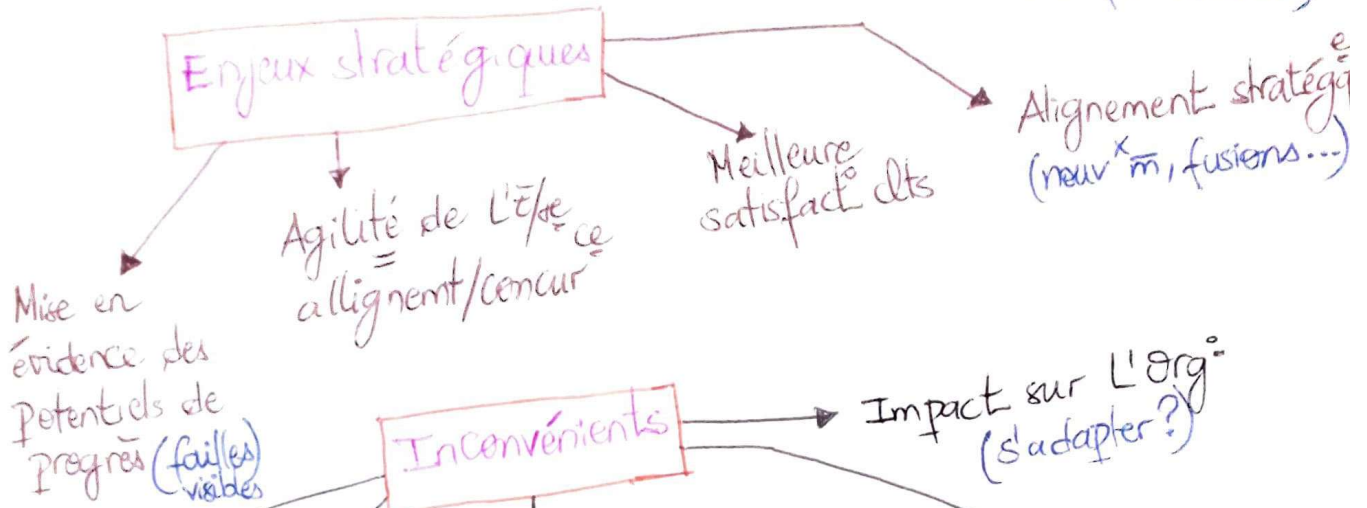 Enjeux stratégiques
Alignement stratégq̃e
(nouvˣ m̄, fusions...)
Meilleure
satisfact° clts
Agilité de L'Ē/se
=
allignemt/concurce
Mise en
évidence des
Potentiels de
progrès (failles)
visibles
Inconvénients
Impact sur L'Org°
(s'adapter?)